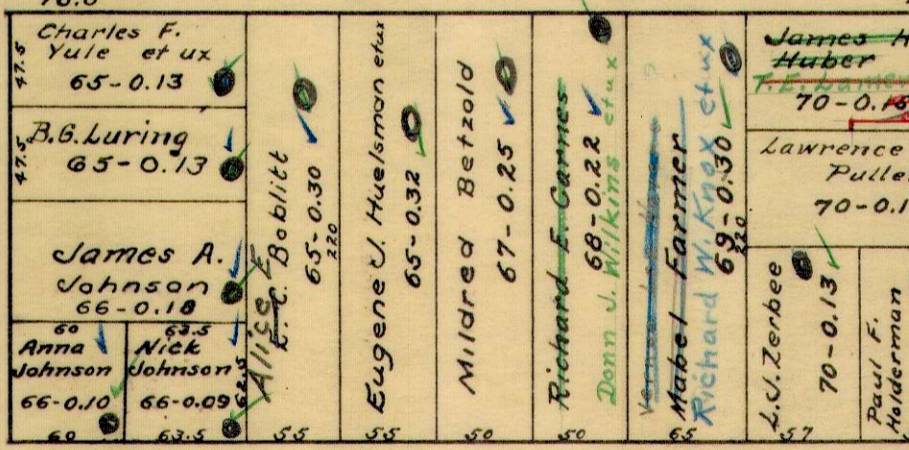 Charles F.
Yule et ux
65-0.13
47.5
B.G. Luring
65-0.13
47.5
James A.
Johnson
66-0.18
60
Anna
Johnson
66-0.10
60
63.5
Nick
Johnson
66-0.09
62.5
63.5
Alice F
E. C. Boblitt
65-0.30
220
55
Eugene J. Huelsman et ux
65-0.32
55
Mildred Betzold
67-0.25
50
Richard E. Garnes
68-0.22
Donn J. Wilkins et ux
50
Mabel Farmer
Richard W. Knox et ux
69-0.30
220
65
James H
Huber
70-0.15
Lawrence
Pulle
70-0.1
L.J. Zerbee
70-0.13
57
Paul F.
Holderman